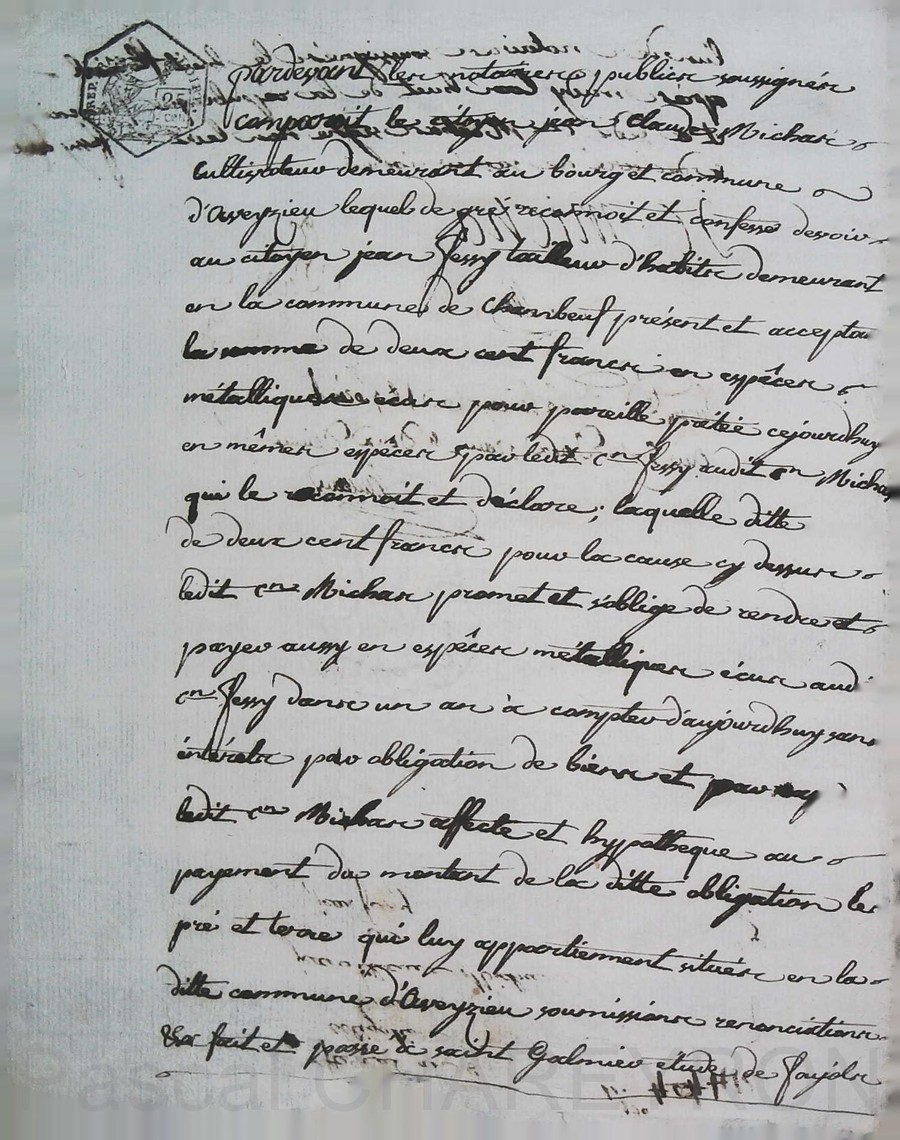 pardevant les notaires publics soussignés
comparoit le citoyen jean Claude Michas
cultivateur demeurant au bourg et commune
d'aveyzieu lequel de gré reconnoit et confesse devoir
au citoyen jean Jessy tailleur d'habits demeurant
en la commune de Chambeuf présent et accepta
la somme de deux cent francs en espêces
métalliques écus pour pareille prêtée cejourdhuy
en mêmes espêces par ledit cn Jessy audit cn Michas
qui le reconnoit et déclare ; laquelle ditte
de deux cent francs pour la cause cy dessus
ledit cn Michas promet et s'oblige de rendre et
payer aussy en espêces métalliques écus aud
cn Jessy dans un an à compter d'aujourdhuy sans
intérêts par obligation de biens et par
ledit cn Michas affecte et hypothèque au
payement du montant de la ditte obligation les
pré et terre qui luy appartiennent situés en la
ditte commune d'aveyzieu soumissions renonciations
&a fait et passé à saint Galmier etude de Jayols
REP
25